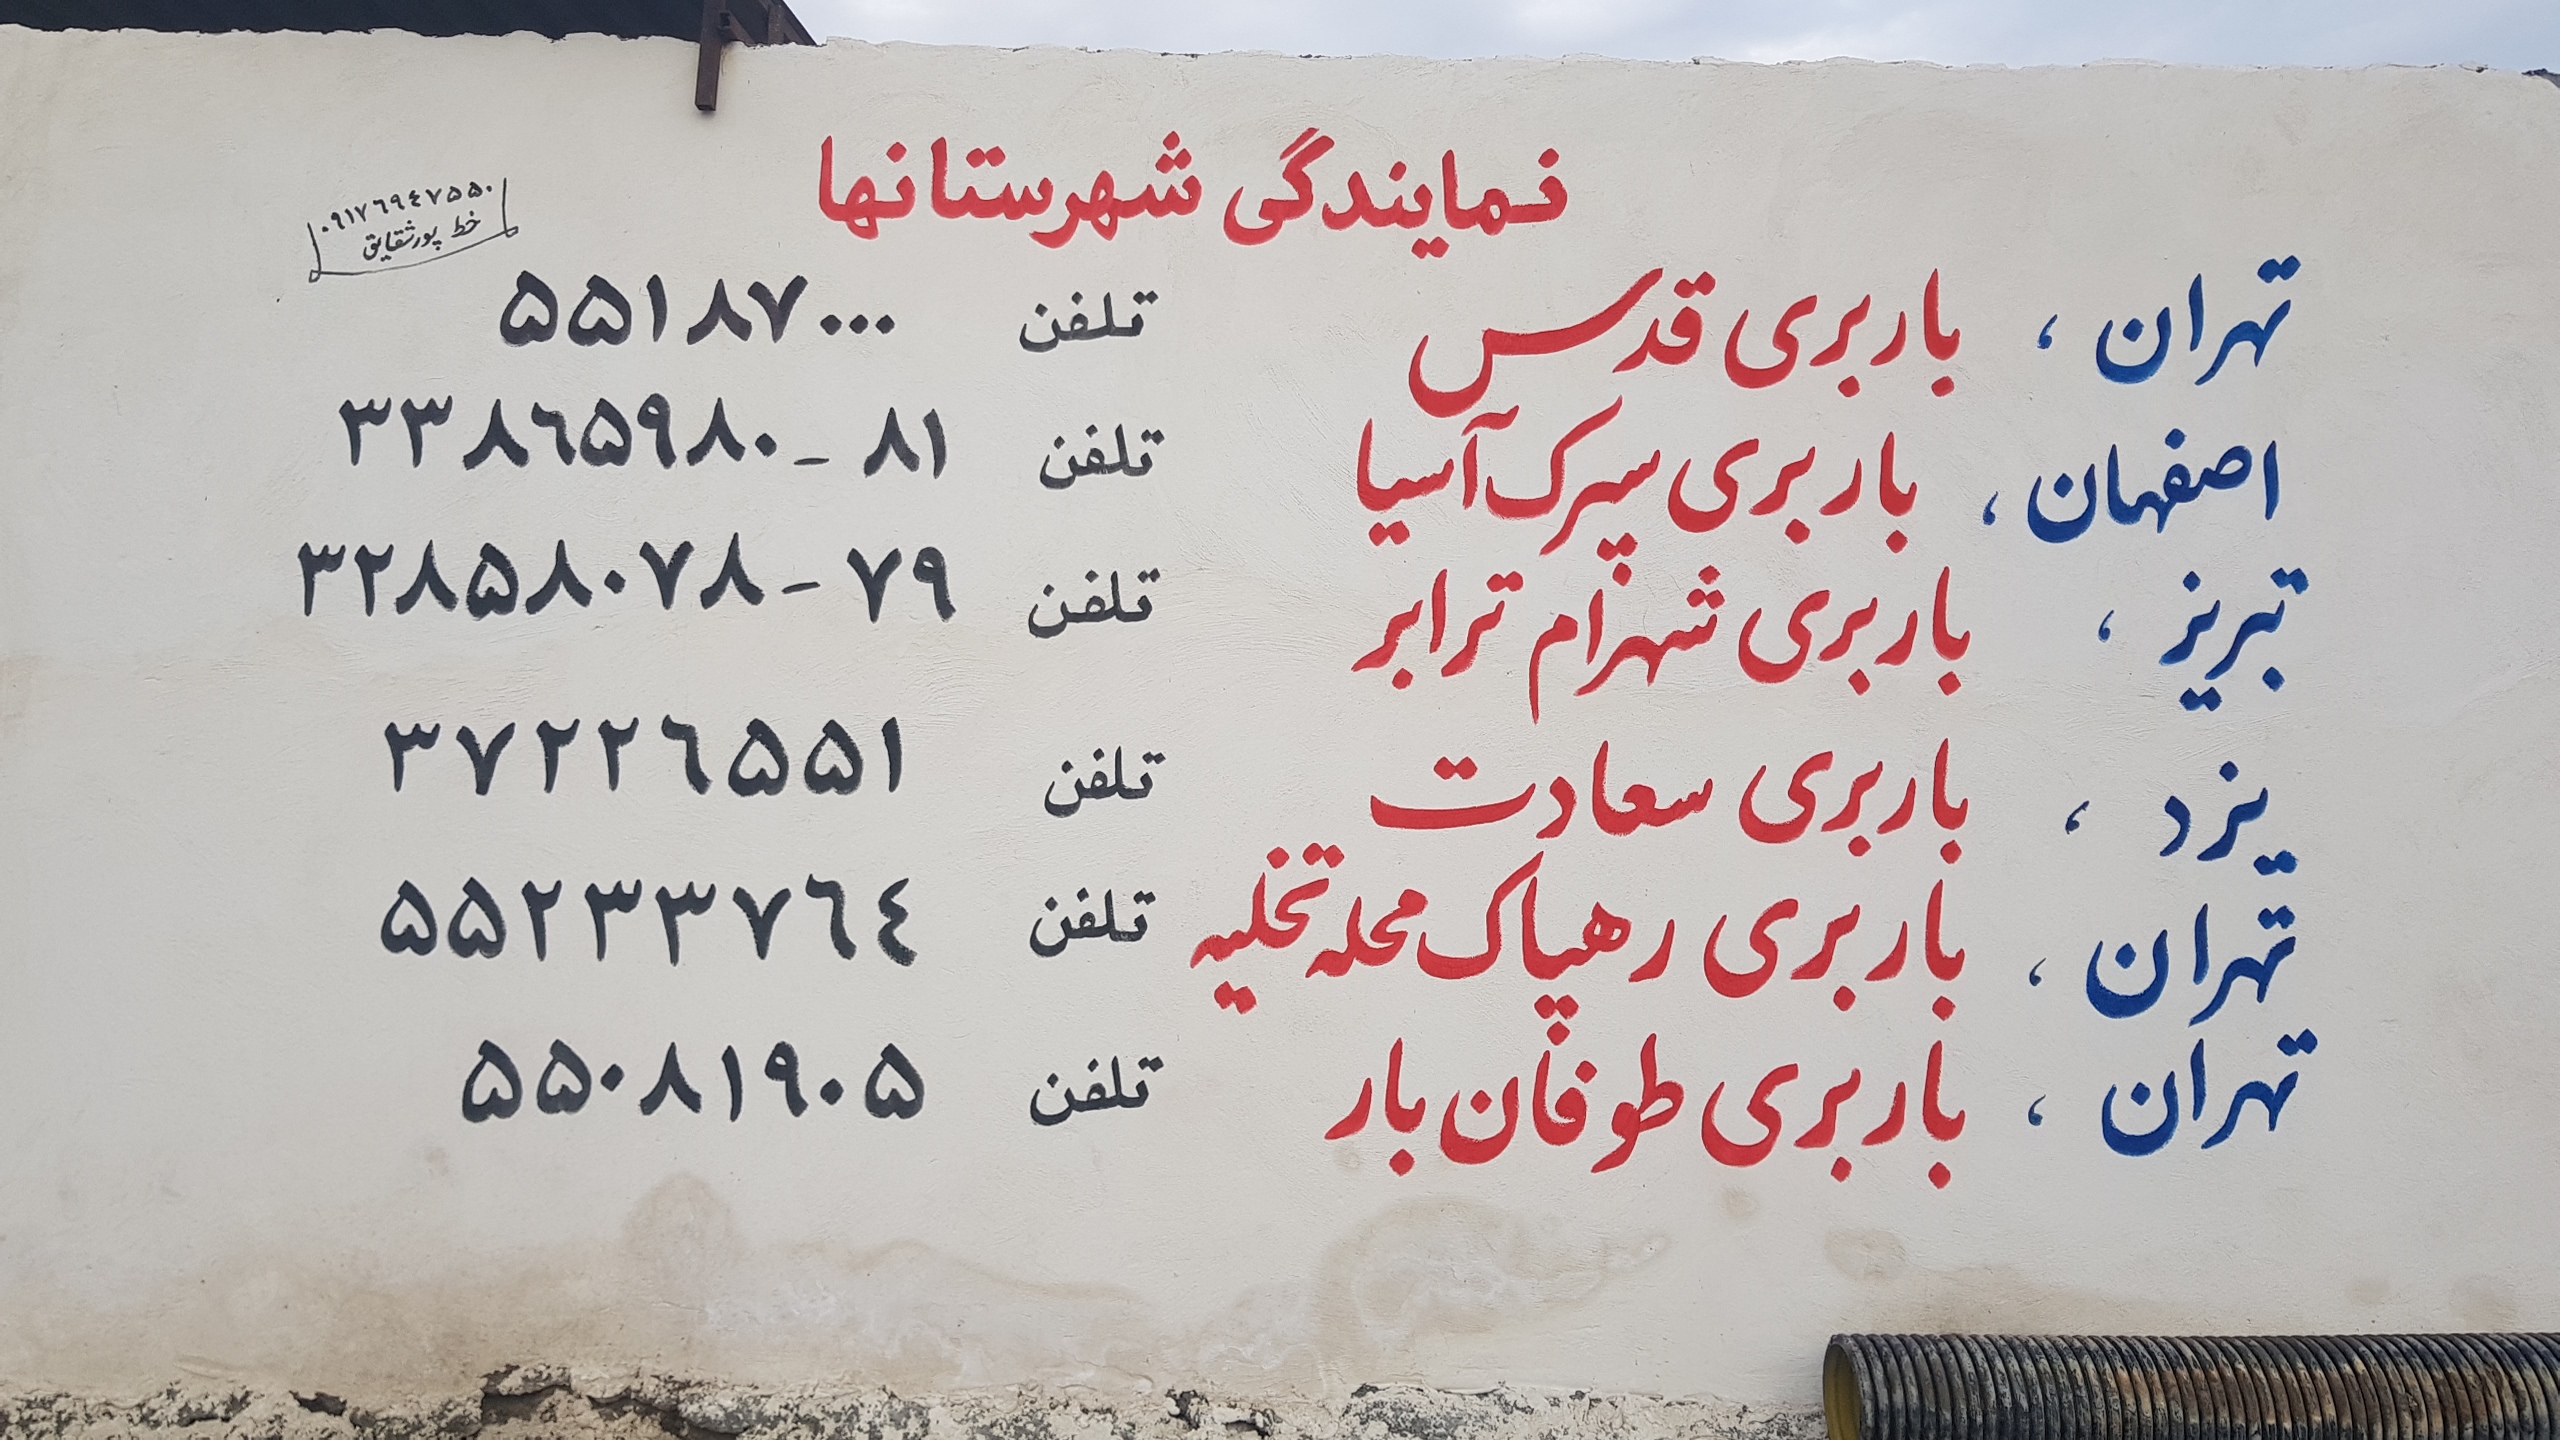 نمایندگی شهرستانها
۰۹۱۷۶۹۴۷۵۵۰
خط پورشقایق
تهران ، باربری قدس تلفن ۵۵۱۸۷۰۰۰
اصفهان ، باربری سپرک آسیا تلفن ۳۳۸۶۵۹۸۰ - ۸۱
تبریز ، باربری شهرام ترابر تلفن ۳۲۸۵۸۰۷۸ - ۷۹
یزد ، باربری سعادت تلفن ۳۷۲۲۶۵۵۱
تهران ، باربری رهپاک محله تخلیه تلفن ۵۵۲۳۳۷۶۴
تهران ، باربری طوفان بار تلفن ۵۵۰۸۱۹۰۵